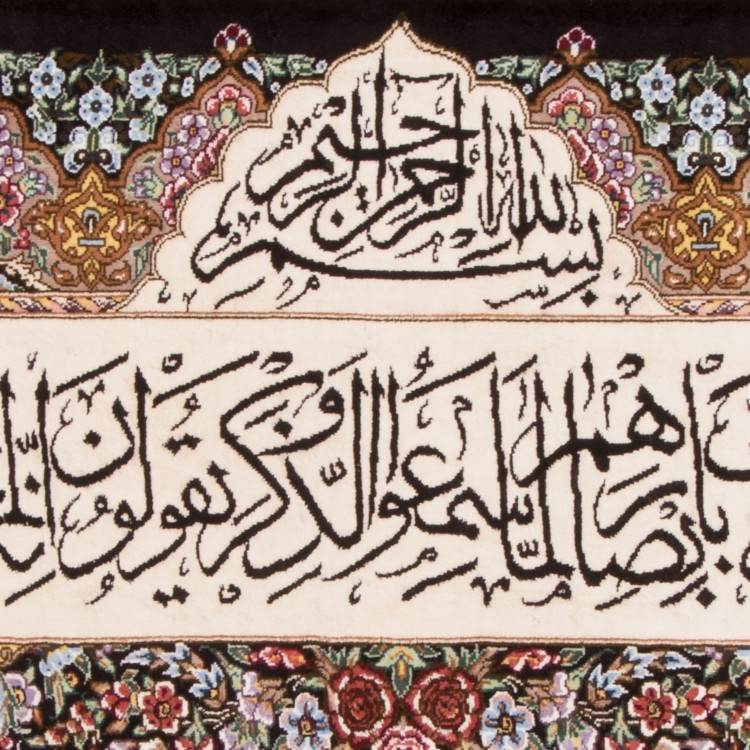 بسم الله الرحمن الرحيم
بابصارهم لما سمعوا الذكر و يقولون انه